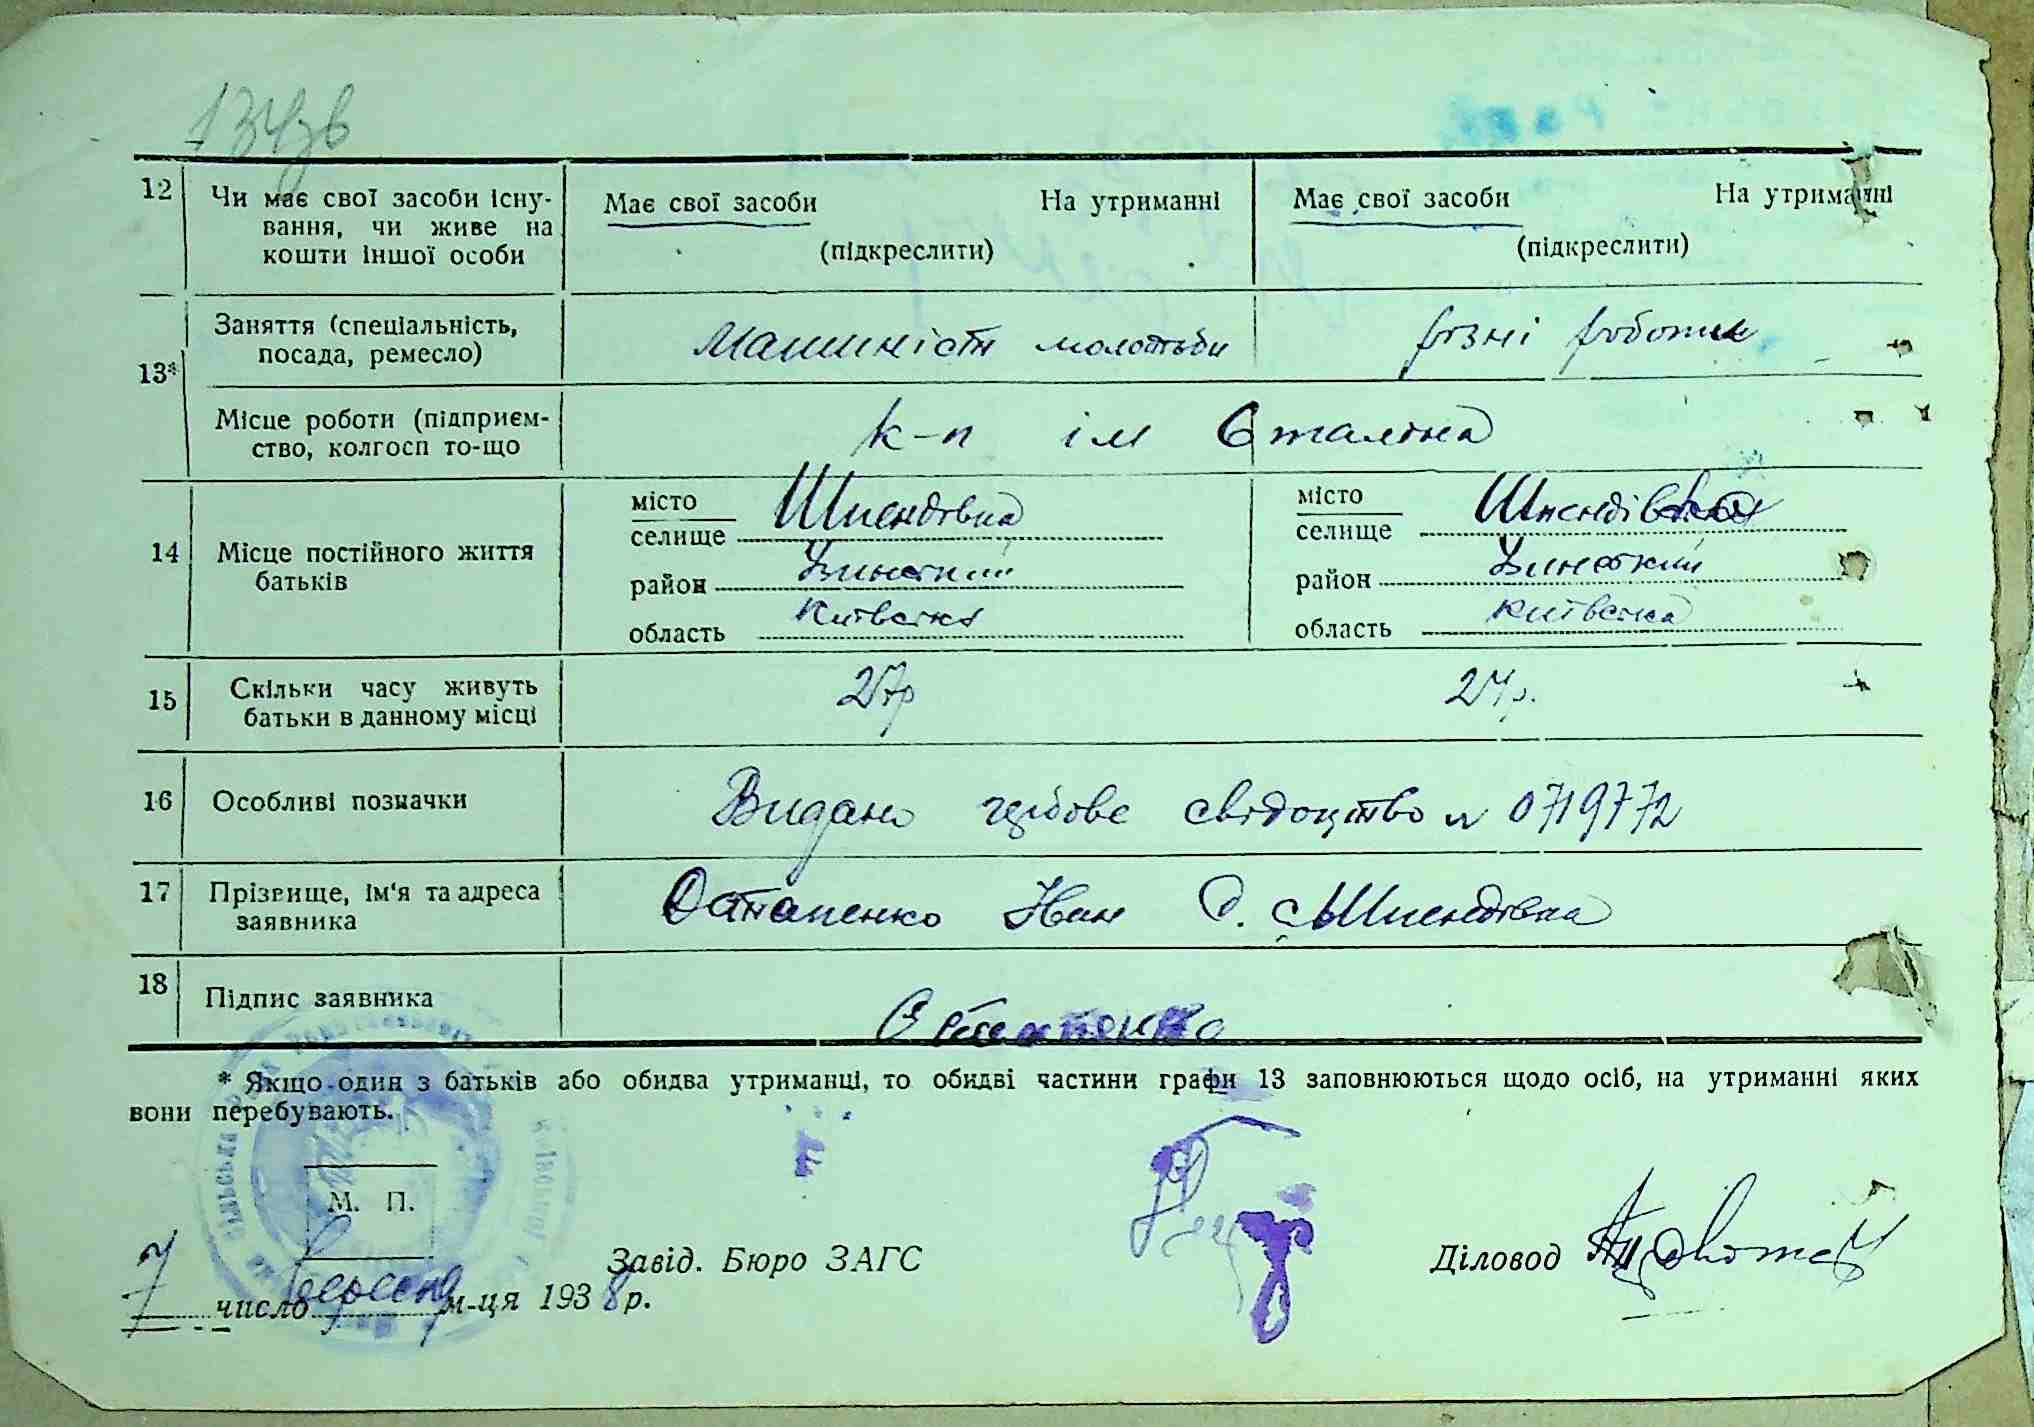 12 Чи має свої засоби існу-
вання, чи живе на
кошти іншої особи
Має свої засоби На утриманні
(підкреслити)
Має свої засоби На утриманні
(підкреслити)
13* Заняття (спеціальність,
посада, ремесло)
Машиніст молотьби
різні роботи
Місце роботи (підприєм-
ство, колгосп то-що
к-п ім Сталіна
14 Місце постійного життя
батьків
місто
селище Шпендівка
район
область Київська
місто
селище Шпендівка
район
область Київська
15 Скільки часу живуть
батьки в данному місці
27р
24р.
16 Особливі позначки
Видано гербове свідоцтво № 0719772
17 Прізвище, ім'я та адреса
заявника
Остапенко Іван О. с Шпендівка
18 Підпис заявника
Остапенко
* Якщо один з батьків або обидва утриманці, то обидві частини графи 13 заповнюються щодо осіб, на утриманні яких
вони перебувають.
М. П.
Завід. Бюро ЗАГС
Діловод
7 число вересня м-ця 1938р.